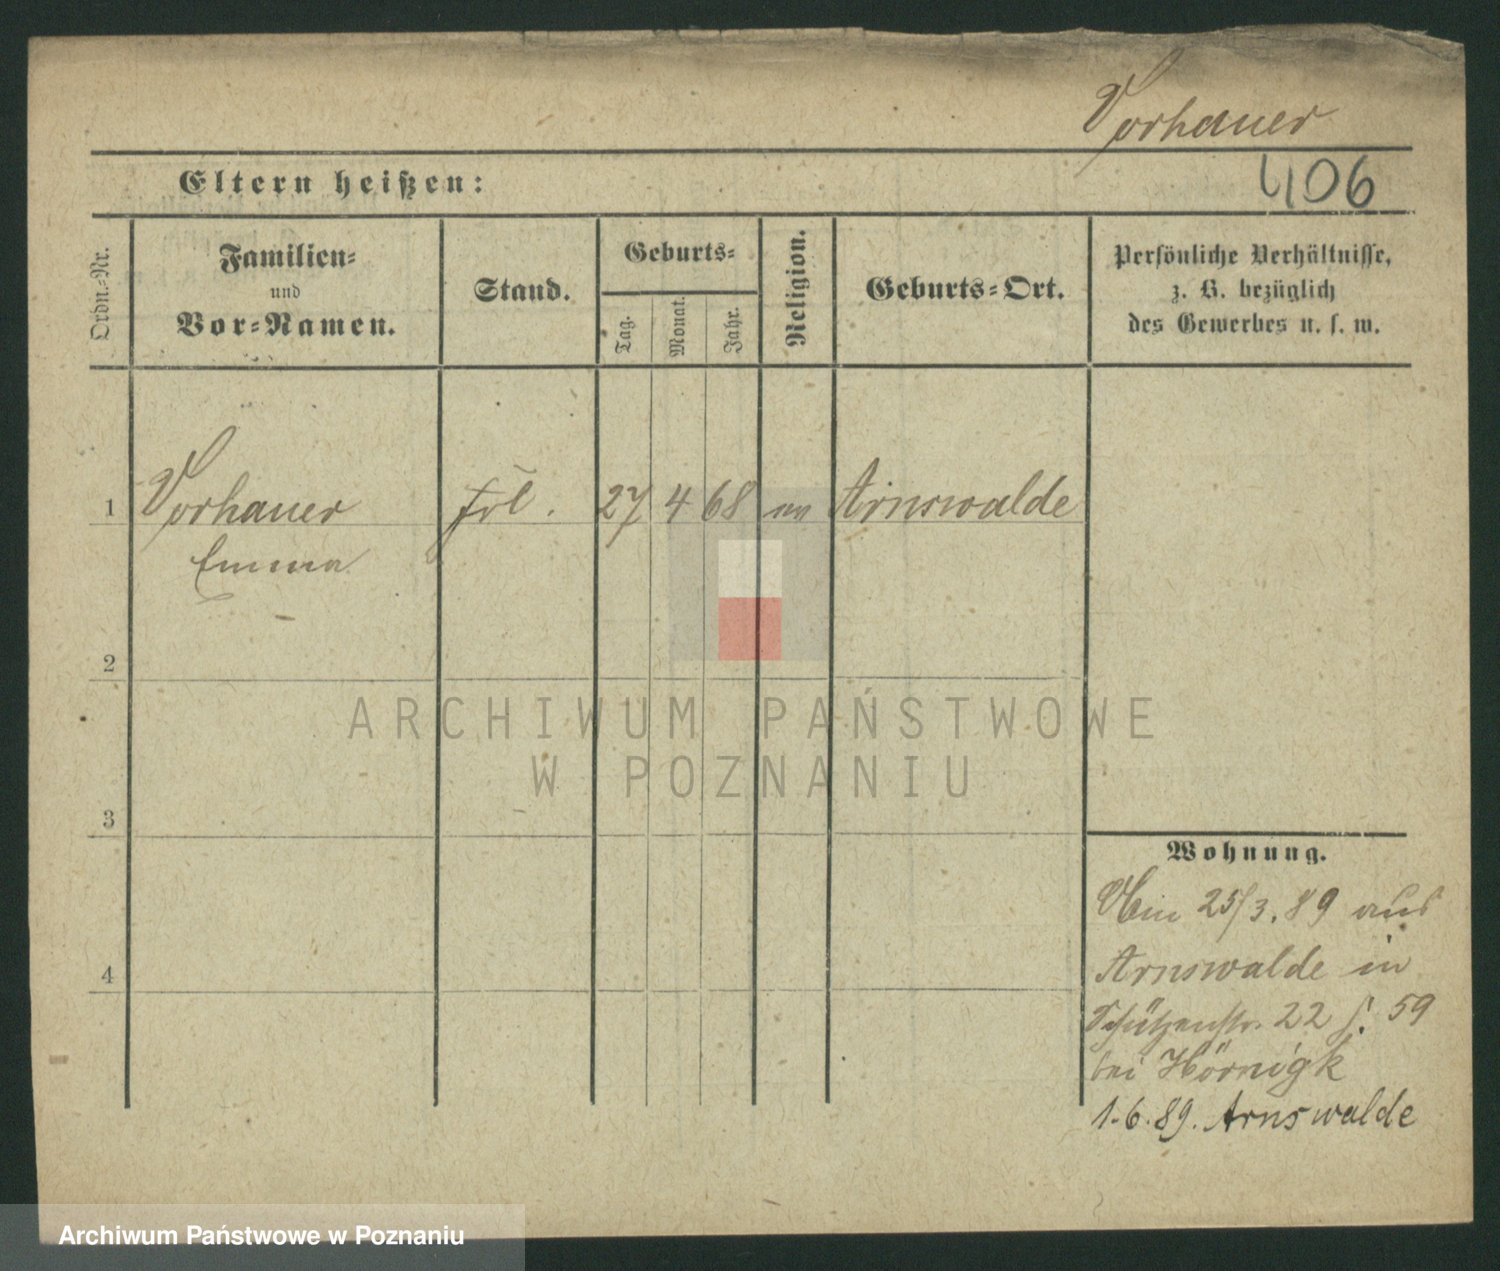 Vorhauer
Eltern heißen:
406
Ordn.-Nr.
Familien-
und
Vor-Namen.
Stand.
Geburts-
Tag.
Monat.
Jahr.
Religion.
Geburts-Ort.
Persönliche Verhältnisse,
z. B. bezüglich
des Gewerbes u. s. w.
1 Vorhauer Frl. 27 4 68 Arnswalde
Emma
2
3
4
Wohnung.
25/3. 89 aus
Arnswalde in
Schützenstr. 22 59
bei Hörnigk
1.6.89. Arnswalde
ARCHIWUM PAŃSTWOWE
W POZNANIU
Archiwum Państwowe w Poznaniu